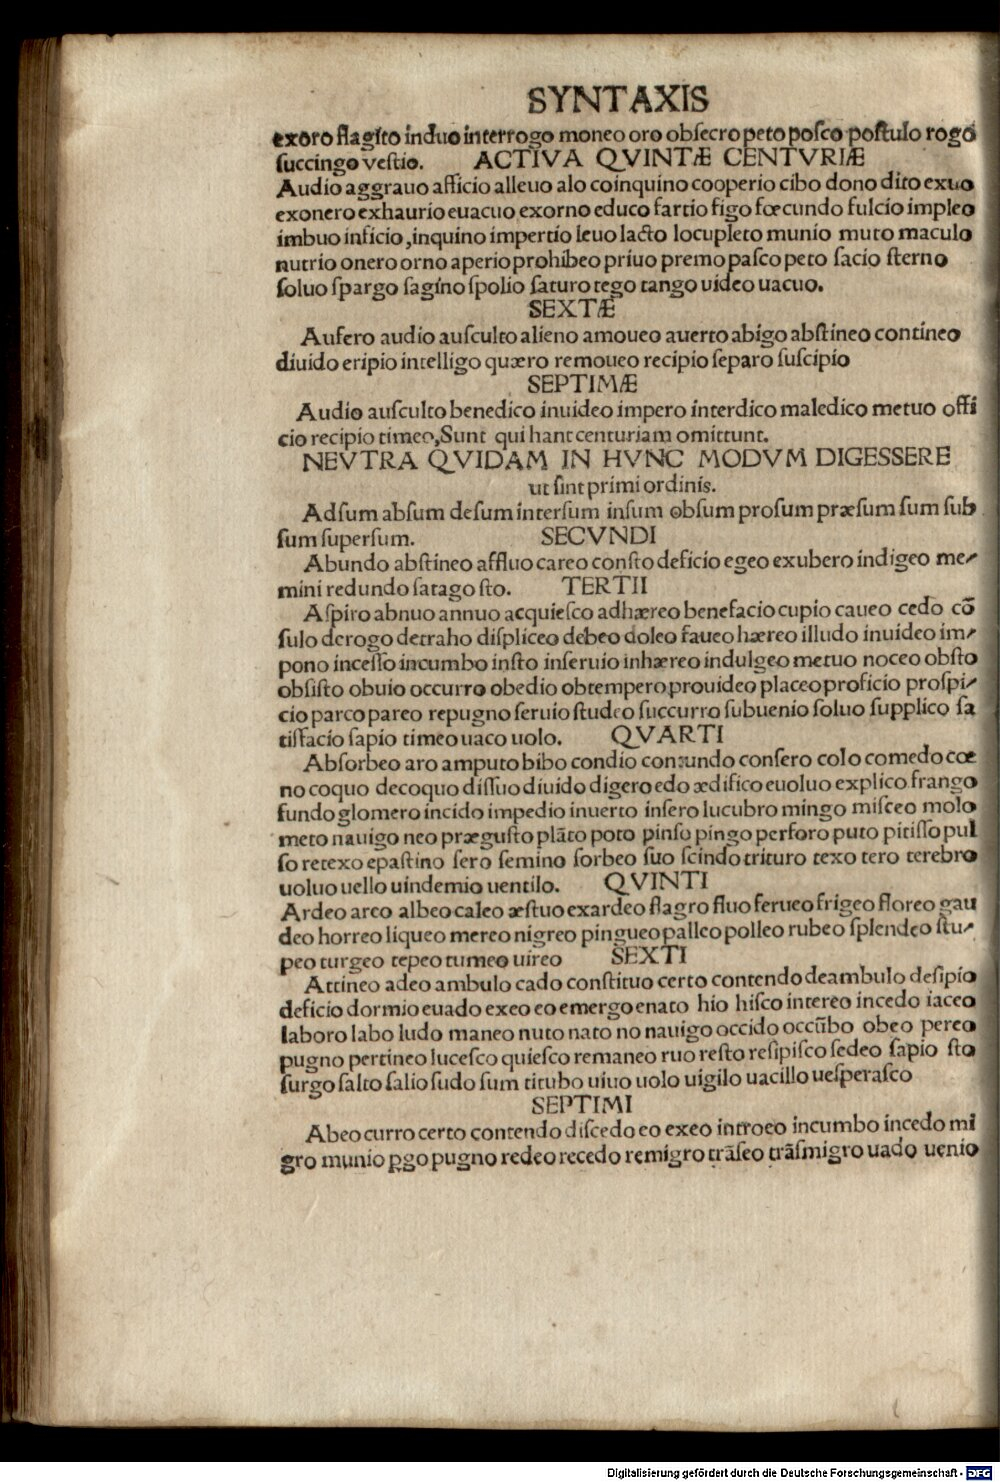 SYNTAXIS
exoro flagito induo interrogo moneo oro obſecro peto poſco poſtulo rogo
ſuccingo veſtio. ACTIVA QVINTÆ CENTVRIÆ
Audio aggrauo afficio alleuo alo coinquino cooperio cibo dono dito exuo
exonero exhaurio euacuo exorno educo fartio figo fœcundo fulcio impleo
imbuo inficio,inquino impertio leuo lacto locupleto munio muto maculo
nutrio onero orno aperio prohibeo priuo premo paſco peto ſacio ſterno
ſoluo ſpargo ſagino ſpolio ſaturo tego tango uideo uacuo.
SEXTÆ
Aufero audio auſculto alieno amoueo auerto abigo abſtineo contineo
diuido eripio intelligo quæro remoueo recipio ſeparo ſuſcipio
SEPTIMÆ
Audio auſculto benedico inuideo impero interdico maledico metuo offi
cio recipio timeo,Sunt qui hanc centuriam omittunt.
NEVTRA QVIDAM IN HVNC MODVM DIGESSERE
ut ſint primi ordinis.
Adſum abſum deſum interſum inſum obſum proſum præſum ſum ſub
ſum ſuperſum. SECVNDI
Abundo abſtineo affluo careo conſto deficio egeo exubero indigeo me⸗
mini redundo ſatago ſto. TERTII
Aſpiro abnuo annuo acquieſco adhæreo benefacio cupio caueo cedo cõ
ſulo derogo detraho diſpliceo debeo doleo faueo hæreo illudo inuideo im⸗
pono inceſſo incumbo inſto inſeruio inhæreo indulgeo metuo noceo obſto
obſiſto obuio occurro obedio obtempero prouideo placeo proficio proſpi⸗
cio parco pareo repugno ſeruio ſtudeo ſuccurro ſubuenio ſoluo ſupplico ſa
tiſfacio ſapio timeo uaco uolo. QVARTI
Abſorbeo aro amputo bibo condio contundo conſero colo comedo cœ
no coquo decoquo diſſuo diuido digero edo ædifico euoluo explico frango
fundo glomero incido impedio inuerto inſero lucubro mingo miſceo molo
meto nauigo neo præguſto plãto poto pinſo pingo perforo puto pitiſſo pul
ſo retexo epaſtino ſero ſemino ſorbeo ſuo ſcindo trituro texo tero terebro
uoluo uello uindemio uentilo. QVINTI
Ardeo areo albeo caleo æſtuo exardeo flagro fluo ferueo frigeo floreo gau
deo horreo liqueo mereo nigreo pingueo palleo polleo rubeo ſplendeo ſtu⸗
peo turgeo tepeo tumeo uireo SEXTI
Attineo adeo ambulo cado conſtituo certo contendo deambulo deſipio
deficio dormio euado exeo eo emergo enato hio hiſco intereo incedo iaceo
laboro labo ludo maneo nuto nato no nauigo occido occũbo obeo pereo
pugno pertineo luceſco quieſco remaneo ruo reſto reſipiſco ſedeo ſapio ſto
ſurgo ſalto ſalio ſudo ſum titubo uiuo uolo uigilo uacillo ueſperaſco
SEPTIMI
Abeo curro certo contendo diſcedo eo exeo introeo incumbo incedo mi
gro munio ꝑgo pugno redeo recedo remigro trãſeo trãſmigro uado uenio
Digitalisierung gefördert durch die Deutsche Forschungsgemeinschaft - DFG